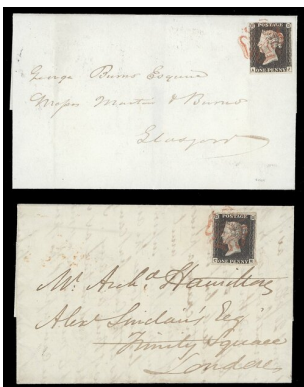 POSTAGE
ONE PENNY
George Burns Esquire
Messrs Martin & Burns
Glasgow
POSTAGE
ONE PENNY
Mr Archd Hamilton
Alexr Sinclair's Esqr
Trinity Square
London